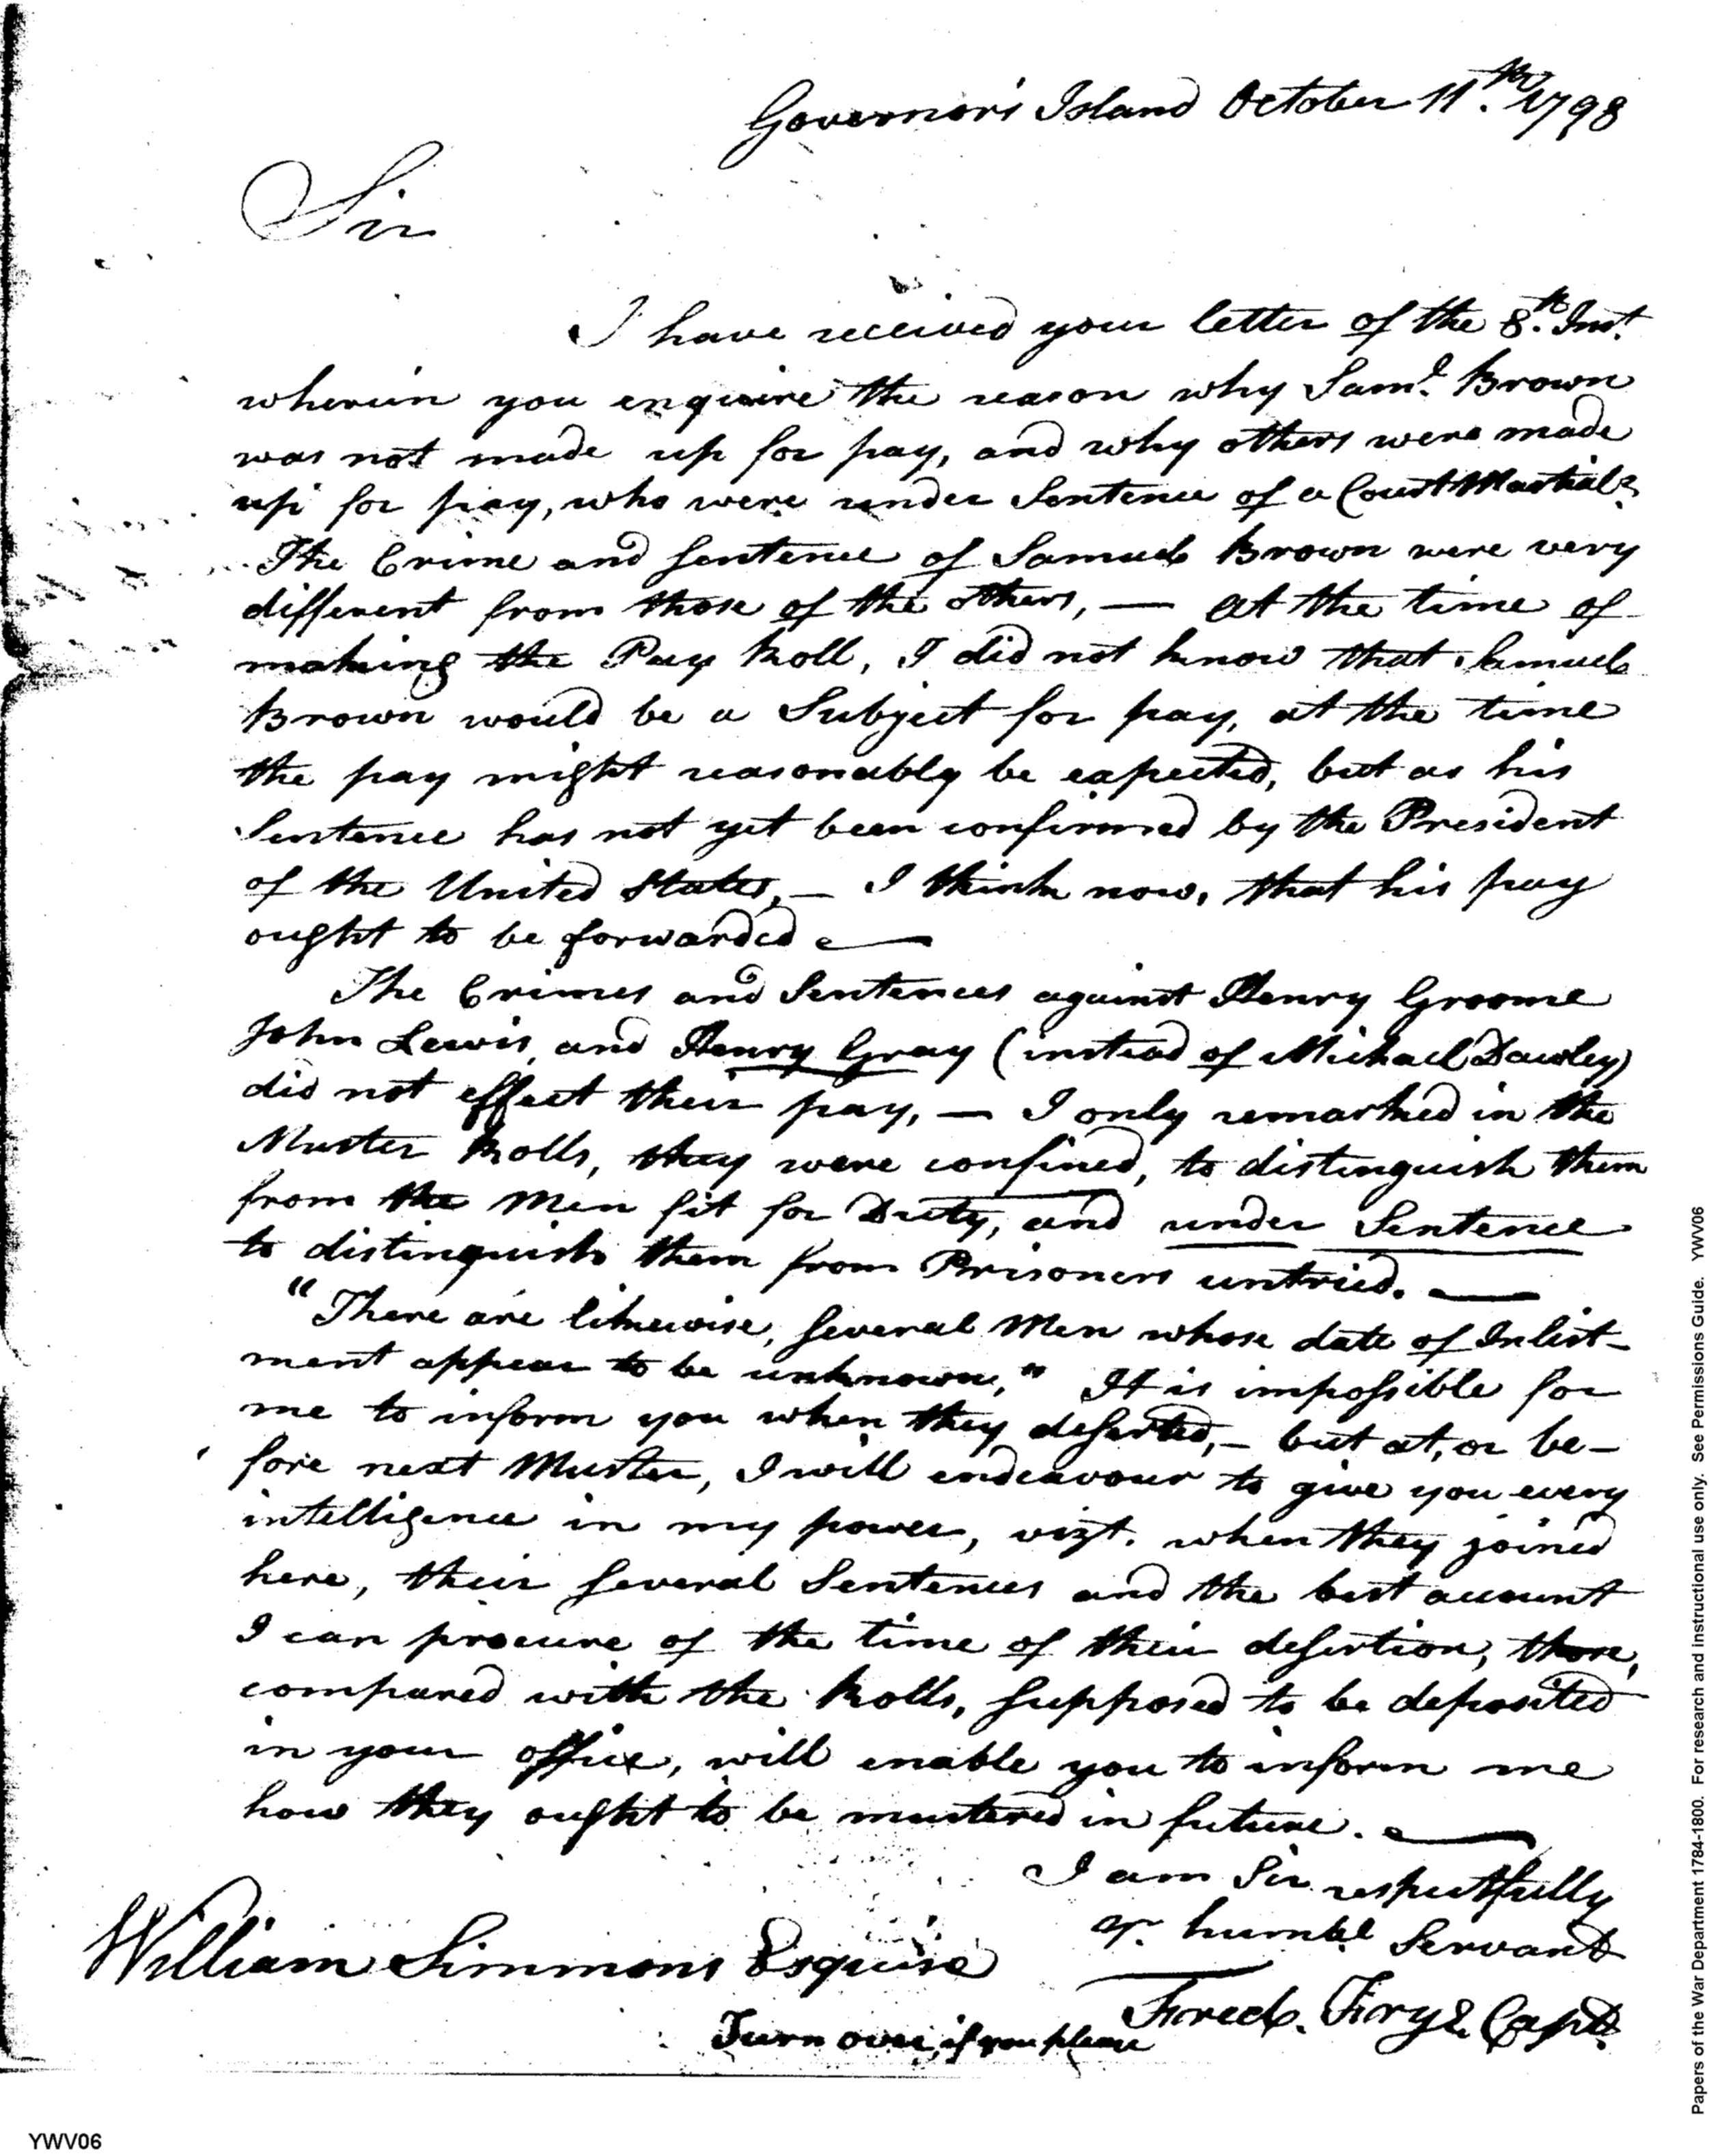 Governor's Island October 11.th 1798
Sir
I have received your letter of the 8.th Inst.
wherein you enquire the reason why Sam.l Brown
was not made up for pay, and why others were made
up for pay, who were under Sentence of a Court Martial?
The Crime and Sentence of Samuel Brown were very
different from those of the others, — at the time of
making the Pay Roll, I did not know that Samuel
Brown would be a Subject for pay, at the time
the pay might reasonably be expected, but as his
Sentence has not yet been confirmed by the President
of the United States, — I think now, that his pay
ought to be forwarded —
The Crimes and Sentences against Henry Groome
John Lewis, and Henry Gray (instead of Michael Dawley)
did not effect their pay, — I only remarked in the
Muster Rolls, they were confined, to distinguish them
from the Men fit for Duty, and under Sentence
to distinguish them from Prisoners untried. —
"There are likewise, several Men whose date of Inlist-
ment appear to be unknown," It is impossible for
me to inform you when they deserted, — but at, or be-
fore next Muster, I will endeavour to give you every
intelligence in my power, vizt. when they joined
here, their several Sentences and the best account
I can procure of the time of their desertion, those,
compared with the Rolls, supposed to be deposited
in your office, will enable you to inform me
how they ought to be mustered in future. —
I am Sir respectfully
yr. humbl Servant
Fredk. Frye Capt.
William Simmons Esquire
Turn over, if you please
Papers of the War Department 1784-1800. For research and instructional use only. See Permissions Guide. YWV06
YWV06